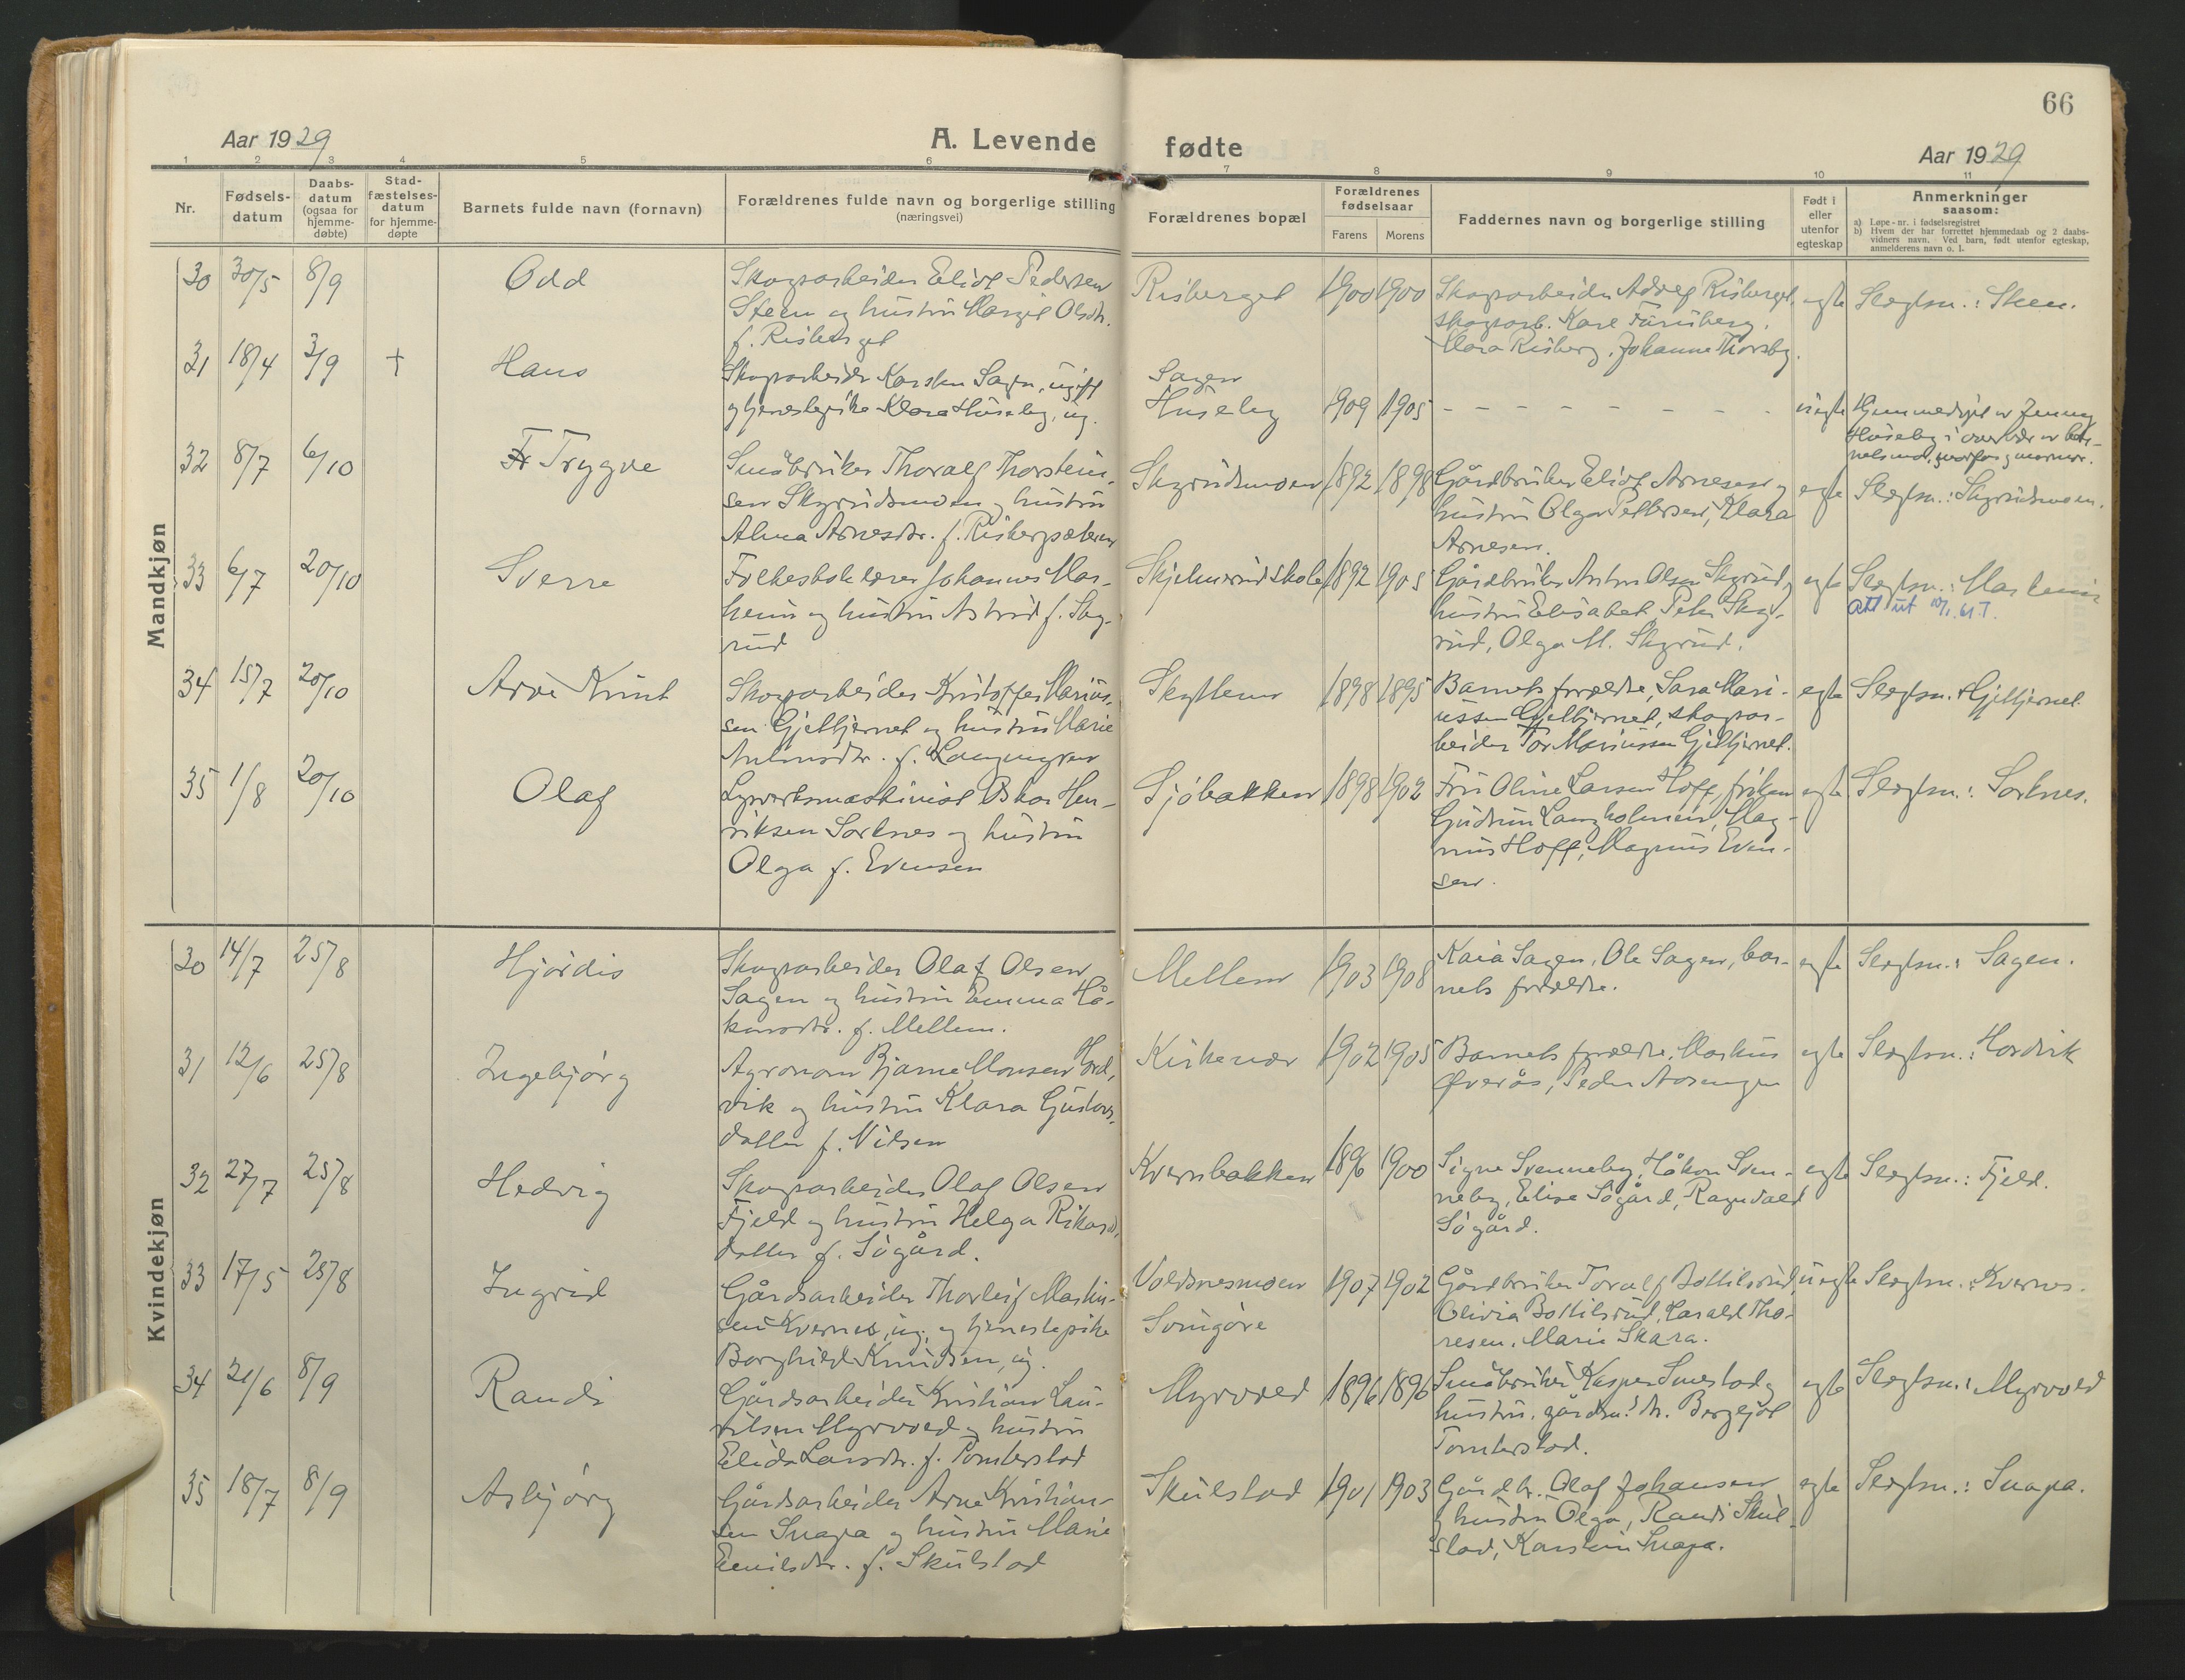 66
Aar 1929
A. Levende fødte
Aar 1929
1 2 3 4 5 6 7 8 9 10 11
Nr.
Fødsels-
datum
Daabs-
datum
(ogsaa for
hjemme-
døbte)
Stad-
fæstelses-
datum
for hjemme-
døpte
Barnets fulde navn (fornavn)
Forældrenes fulde navn og borgerlige stilling
(næringsvei)
Forældrenes bopæl
Forældrenes
fødselsaar
Farens Morens
Faddernes navn og borgerlige stilling
Født i
eller
utenfor
egteskap
Anmerkninger
saasom:
a) Løpe-nr. i fødselsregistret
b) Hvem der har forrettet hjemmedaab og 2 daabs-
vidners navn. Ved barn, født utenfor egteskap,
anmelderens navn o. l.
Mandkjøn
30 30/5 8/9 Odd
Skogsarbeider Eliot Pedersen
Steen og hustru Margit Olsdtr.
f. Risberget
Risberget 1900 1900
Skogsarbeider Adolf Risberget,
skogsarb. Karl Furuberg,
Klara Risberg, Johanne Thorsby.
egte Slegtsn.: Steen.
31 18/4 3/9 † Hans
Skogsarbeider Karsten Sagen, ugift
og tjenestepike Klara Huseby, ug.
Sagen
Huseby 1909 1905
- - - - - - - - -
uegte Hjemmedøpt av Jenny
Huseby i overvær av bar-
nets mor, morfar og mormor.
32 8/7 6/10 Trygve
Småbruker Thoralf Thorstein-
sen Skyrudsmoen og hustru
Alma Arnesdtr. f. Risbergsæteren
Skyrudsmoen 1892 1898
Gårdbruker Eliot Arnesen og
hustru Olga Pettersen, Klara
Arnesen.
egte Slegtsn.: Skyrudsmoen.
33 6/7 20/10 Sverre
Folkeskolelærer Johannes Mar-
heim og hustru Astrid f. Sky-
rud
Skjelnerud skole 1892 1905
Gårdbruker Anton Olsen Skyrud,
hustru Elisabet, Peter Sky-
rud, Olga M. Skyrud.
egte Slegtsn.: Marheim
Att ut
34 15/7 20/10 Arve Knut
Skogsarbeider Kristoffer Marius-
sen Gjeltjernet og hustru Marie
Antonsdtr. f. Langmyren
Skyttern 1898 1895
Barnets forældre, Sara Mari-
ussen Gjeltjernet, skogsar-
beider Tor Mariussen Gjeltjernet.
egte Slegtsn. Gjeltjernet.
35 1/8 20/10 Olaf
Lysverksmaskinist Oskar Hen-
riksen Sorknes og hustru
Olga f. Evensen
Sjøbakken 1898 1902
Fru Oline Larsen Hoff, frøken
Gudrun Langholmen, Mag-
nus Hoff, Magnus Even-
sen.
egte Slegtsn.: Sorknes.
Kvindekjøn
30 14/7 25/8 Hjørdis
Skogsarbeider Olaf Olsen
Sagen og hustru Emma Hå-
konsdtr. f. Mellem.
Mellem 1903 1908
Kaia Sagen, Ole Sagen, bar-
nets forældre.
egte Slegtsn.: Sagen.
31 12/6 25/8 Ingebjørg
Agronom Bjarne Monsen Hord-
vik og hustru Klara Gustavs-
datter f. Nilsen
Kirkenær 1902 1905
Barnets forældre, Markus
Øverås, Peder Aasengen
egte Slegtsn.: Hordvik
32 27/7 25/8 Hedvig
Skogsarbeider Olaf Olsen
Fjeld og hustru Helga Rikards-
datter f. Søgård.
Kvernbakken 1896 1900
Signe Svenneby, Håkon Sven-
neby, Elise Søgård, Ragnvald
Søgård.
egte Slegtsn.: Fjeld.
33 17/5 25/8 Ingrid
Gårdsarbeider Thorleif Martin-
sen Kvernes, ug., og tjenestepike
Borghild Knudsen, ug.
Voldsnesmoen
Sorigøre 1907 1902
Gårdbruker Toralf Bottilsrud,
Olivia Bottilsrud, Harald Tho-
resen, Marie Skara.
uegte Slegtsn.: Kvernes.
34 21/6 8/9 Randi
Gårdsarbeider Kristian Lau-
ritsen Myrvold og hustru
Elida Larsdtr. f. Tomterstad
Myrvold 1896 1896
Småbruker Kasper Smestad og
hustru, gårdm.'s dtr. Bergljot
Tomterstad.
egte Slegtsn.: Myrvold
35 18/7 8/9 Asbjørg
Gårdsarbeider Arne Kristian-
sen Snapa og hustru Marie
Emilsdtr. f. Skulstad
Skulstad 1901 1903
Gårdbr. Olaf Johansen
og hustru Olga, Randi Skul-
stad, Karsten Snapa.
egte Slegtsn.: Snapa.